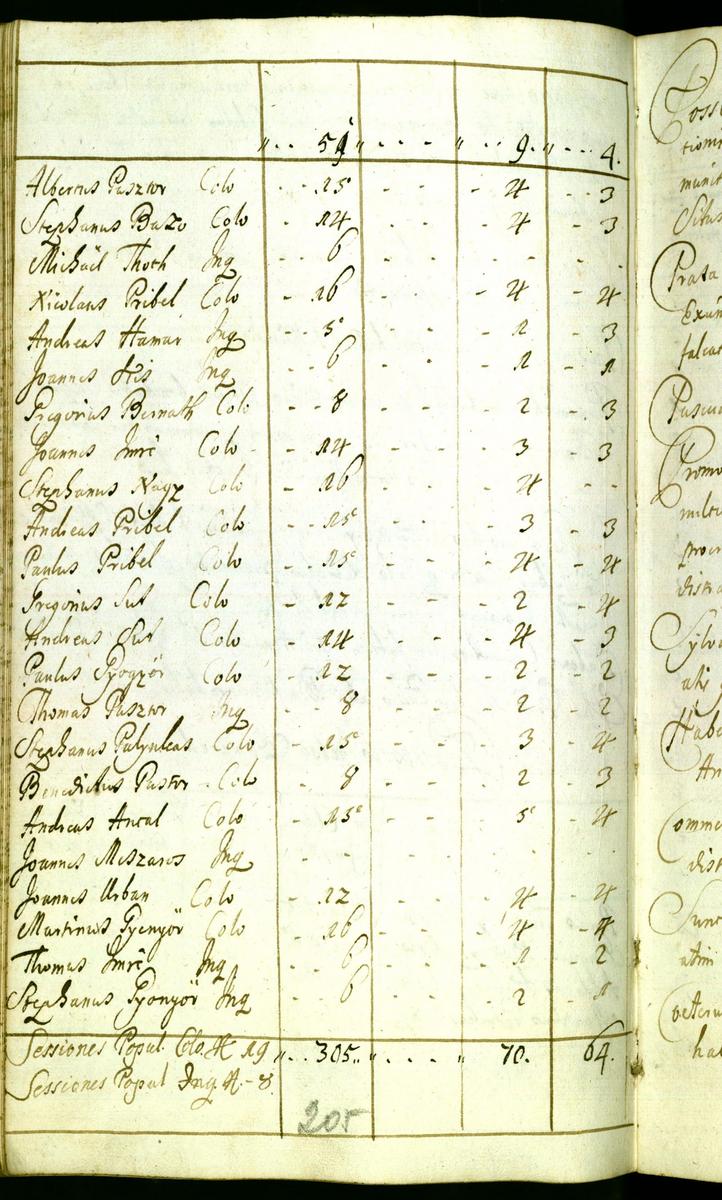 " . . 51 " . . . " . . 9. " . . 4.
Albertus Pasztor Colo - - 15 - - - - 4 - 3
Stephanus Bazo Colo - 14 - - - 4 - 3
Michaël Thoth Inq - 6 - - - - -
Nicolaus Pribel Colo - 16 - - - 4 - 4
Andreas Hamar Inq - - 5 - - - 1 - 3
Joannes Kis Inq - - 6 - - - 1 - 1
Gregorius Bernath Colo - - 8 - - - 2 - 3
Joannes Imre Colo - - 14 - - - 3 - 3
Stephanus Nagy Colo - 16 - - - 4 - -
Andreas Pribel Colo - - 15 - - - 3 - 3
Paulus Pribel Colo - - 15 - - - 4 - 4
Gregorius Sut Colo - 12 - - - 2 - 4
Andreas Sut Colo - 14 - - - 4 - 3
Paulus Gyogyör Colo - 12 - - - 2 - 2
Thomas Pasztor Inq - - 8 - - - 2 - 2
Stephanus Colo - 15 - - - 3 - 4
Benedictus Pastor - Colo - - 8 - - - 2 - 3
Andreas Antal Colo - - 15 - - - 5 - 4
Joannes Meszaros Inq - - - - - -
Joannes Urban Colo - - 12 - - 4 4
Martinus Gyengyör Colo - - 16 - - 4 - 4
Thomas Imre Inq - - 6 - - - 1 - 2
Stephanus Gyongyör Inq - - 6 - - 2 - 1
Sessiones Popul. Colo. N 19 " . . 305 " " . . . " 70. 64.
Sessiones Popul Inq N - 8.
205
Prata